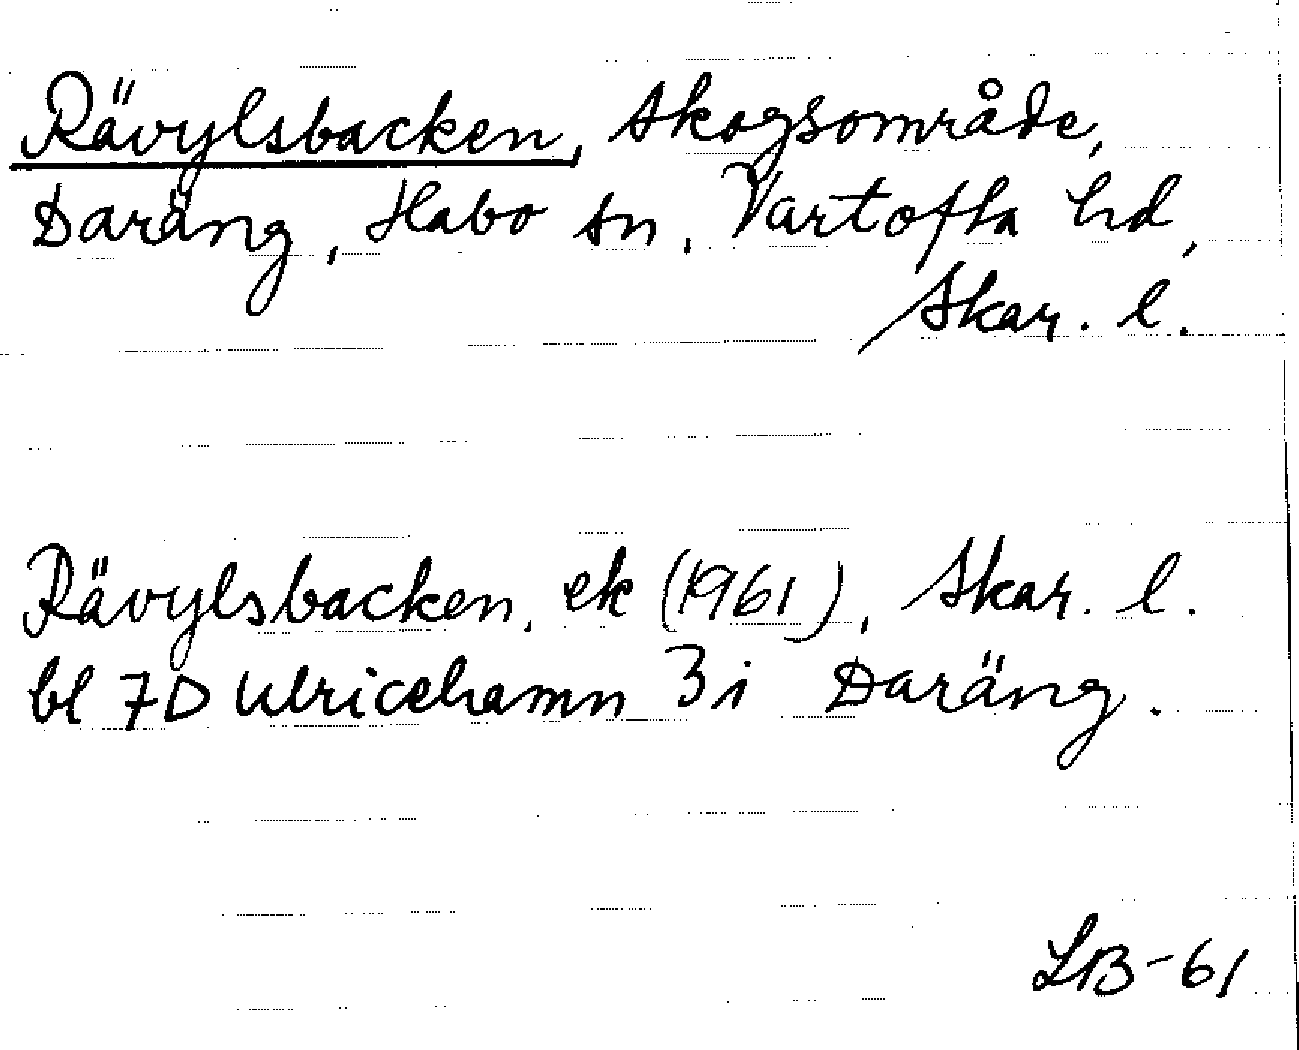 Rävylsbacken, skogsområde,
Daräng, Habo sn, Vartofta hd,
Skar. l.
Rävylsbacken, ek (1961), Skar. l.
bl 7D Ulricehamn 3i Daräng.
LB-61